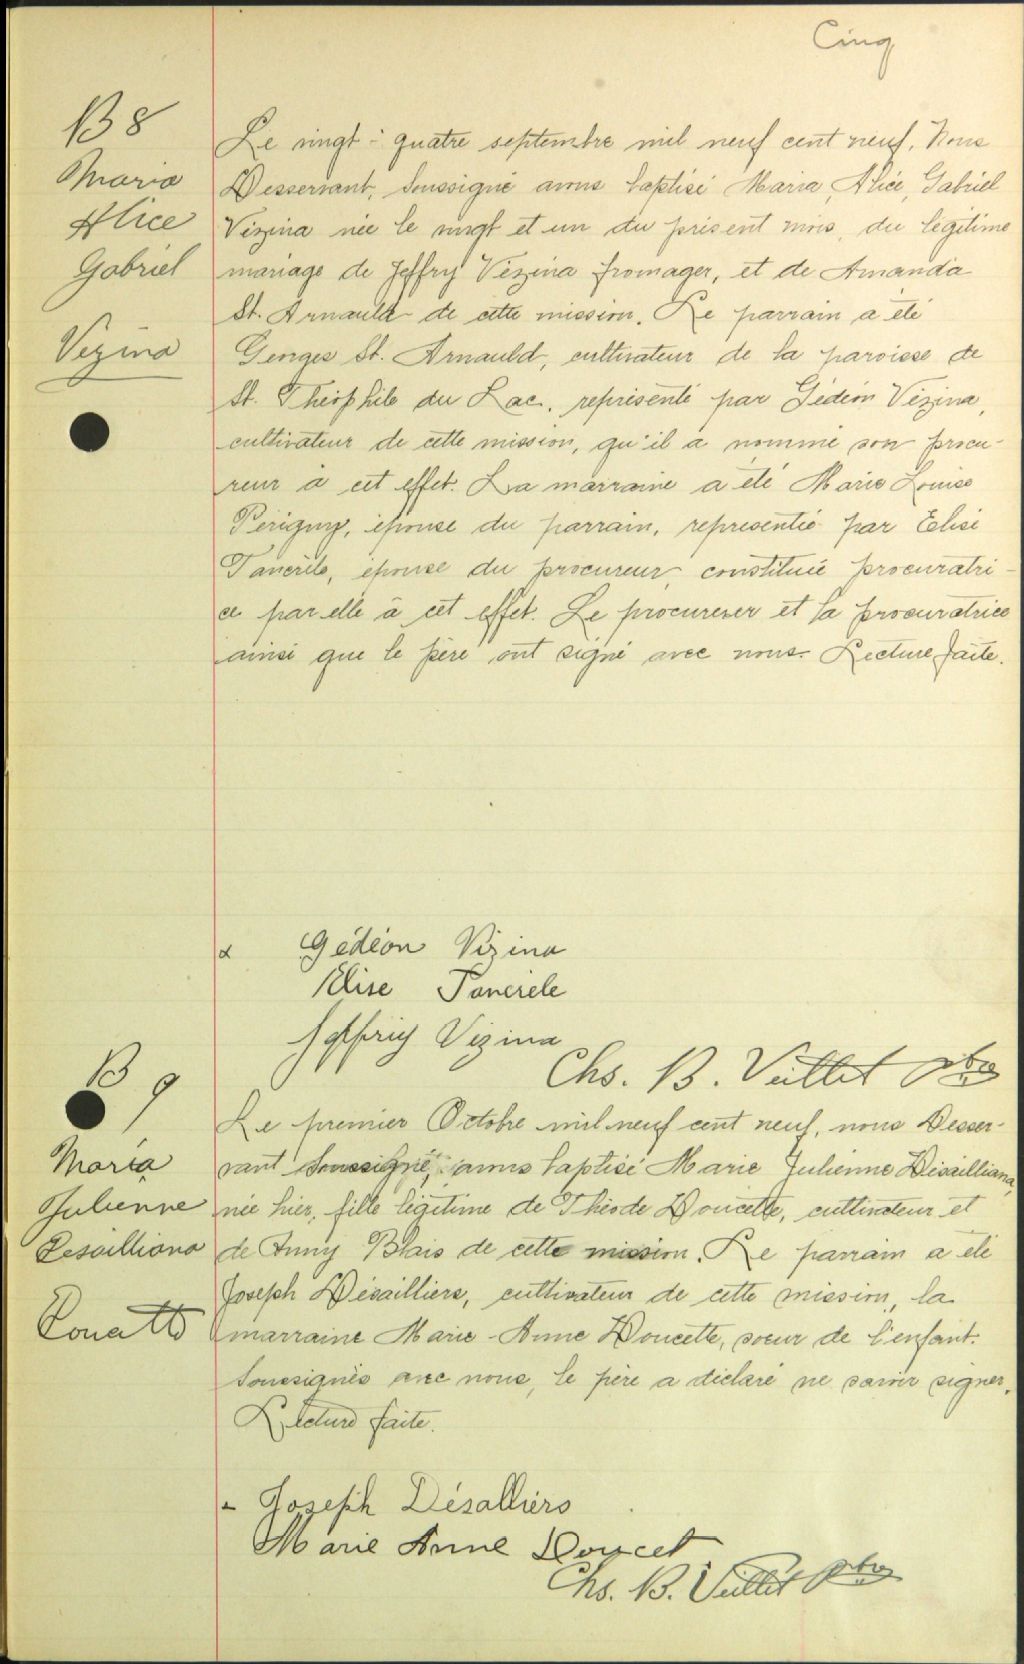 Cinq
B 8
Maria
Alice
Gabriel
Vezina
Le vingt-quatre septembre mil neuf cent neuf, Nous
Desservant, Soussigné avons baptisé Maria, Alice, Gabriel
Vézina née le vingt et un du présent mois, du légitime
mariage de Jeffry Vézina fromager, et de Amanda
St. Arnauld de cette mission. Le parrain a été
Georges St. Arnauld, cultivateur de la paroisse de
St. Théophile du Lac, représenté par Gédéon Vézina,
cultivateur de cette mission, qu'il a nommé son procu-
reur à cet effet. La marraine a été Marie Louise
Périgny, épouse du parrain, representée par Elise
Tancrèle, épouse du procureur, constituée procuratri-
ce par elle à cet effet. Le procureur et la procuratrice
ainsi que le père ont signé avec nous. Lecture faite.
Gédéon Vizina
Elise Tancrele
Jeffrey Vizina
Chs. B. Veillet Ptre
B 9
Maria
Julienne
Desailliana
Doucette
Le premier Octobre mil neuf cent neuf, nous Desser-
vant Soussigné, avons baptisé Marie Julienne Désailliana,
née hier, fille légitime de Théode Doucette, cultivateur et
de Anny Blais de cette mission. Le parrain a été
Joseph Désailliers, cultivateur de cette mission, la
marraine Marie-Anne Doucette, soeur de l'enfant.
Soussignés avec nous, le père a déclaré ne savoir signer.
Lecture faite.
Joseph Désalliers
Marie Anne Doucet
Chs. B. Veillet Ptre